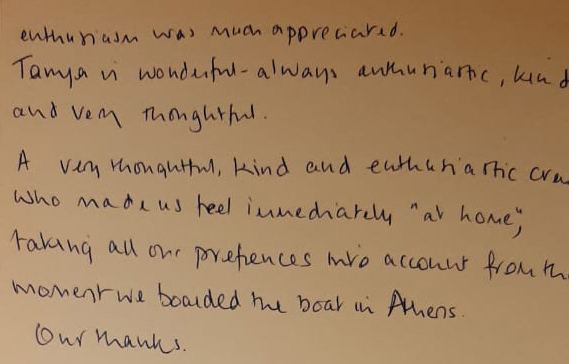 enthusiasm was much appreciated.
Tanya is wonderful - always enthusiastic, kind
and very thoughtful.
A very thoughtful, kind and enthusiastic crew
who made us feel immediately "at home",
taking all our prefences into account from the
moment we boarded the boat in Athens.
Our thanks.